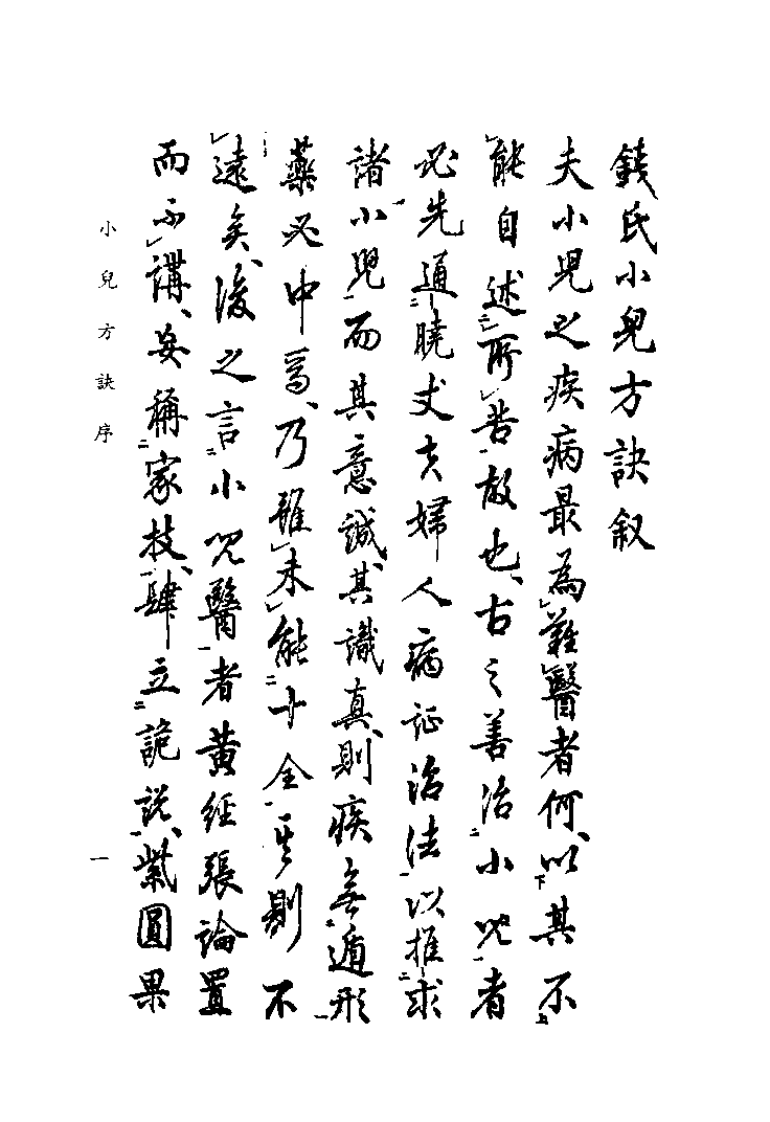 錢氏小兒方訣叙
夫小兒之疾病最為難醫者何以其不
能自述所苦故也古之善治小兒者
必先通曉丈夫婦人病证治法以推求
諸小兒而其意誠其識真則疾無遁形
藥必中焉乃雖未能十全其則不
遠矣後之言小兒醫者黃經張論置
而不講妄稱家技肆立詭説紫圓果
小兒方訣序
一